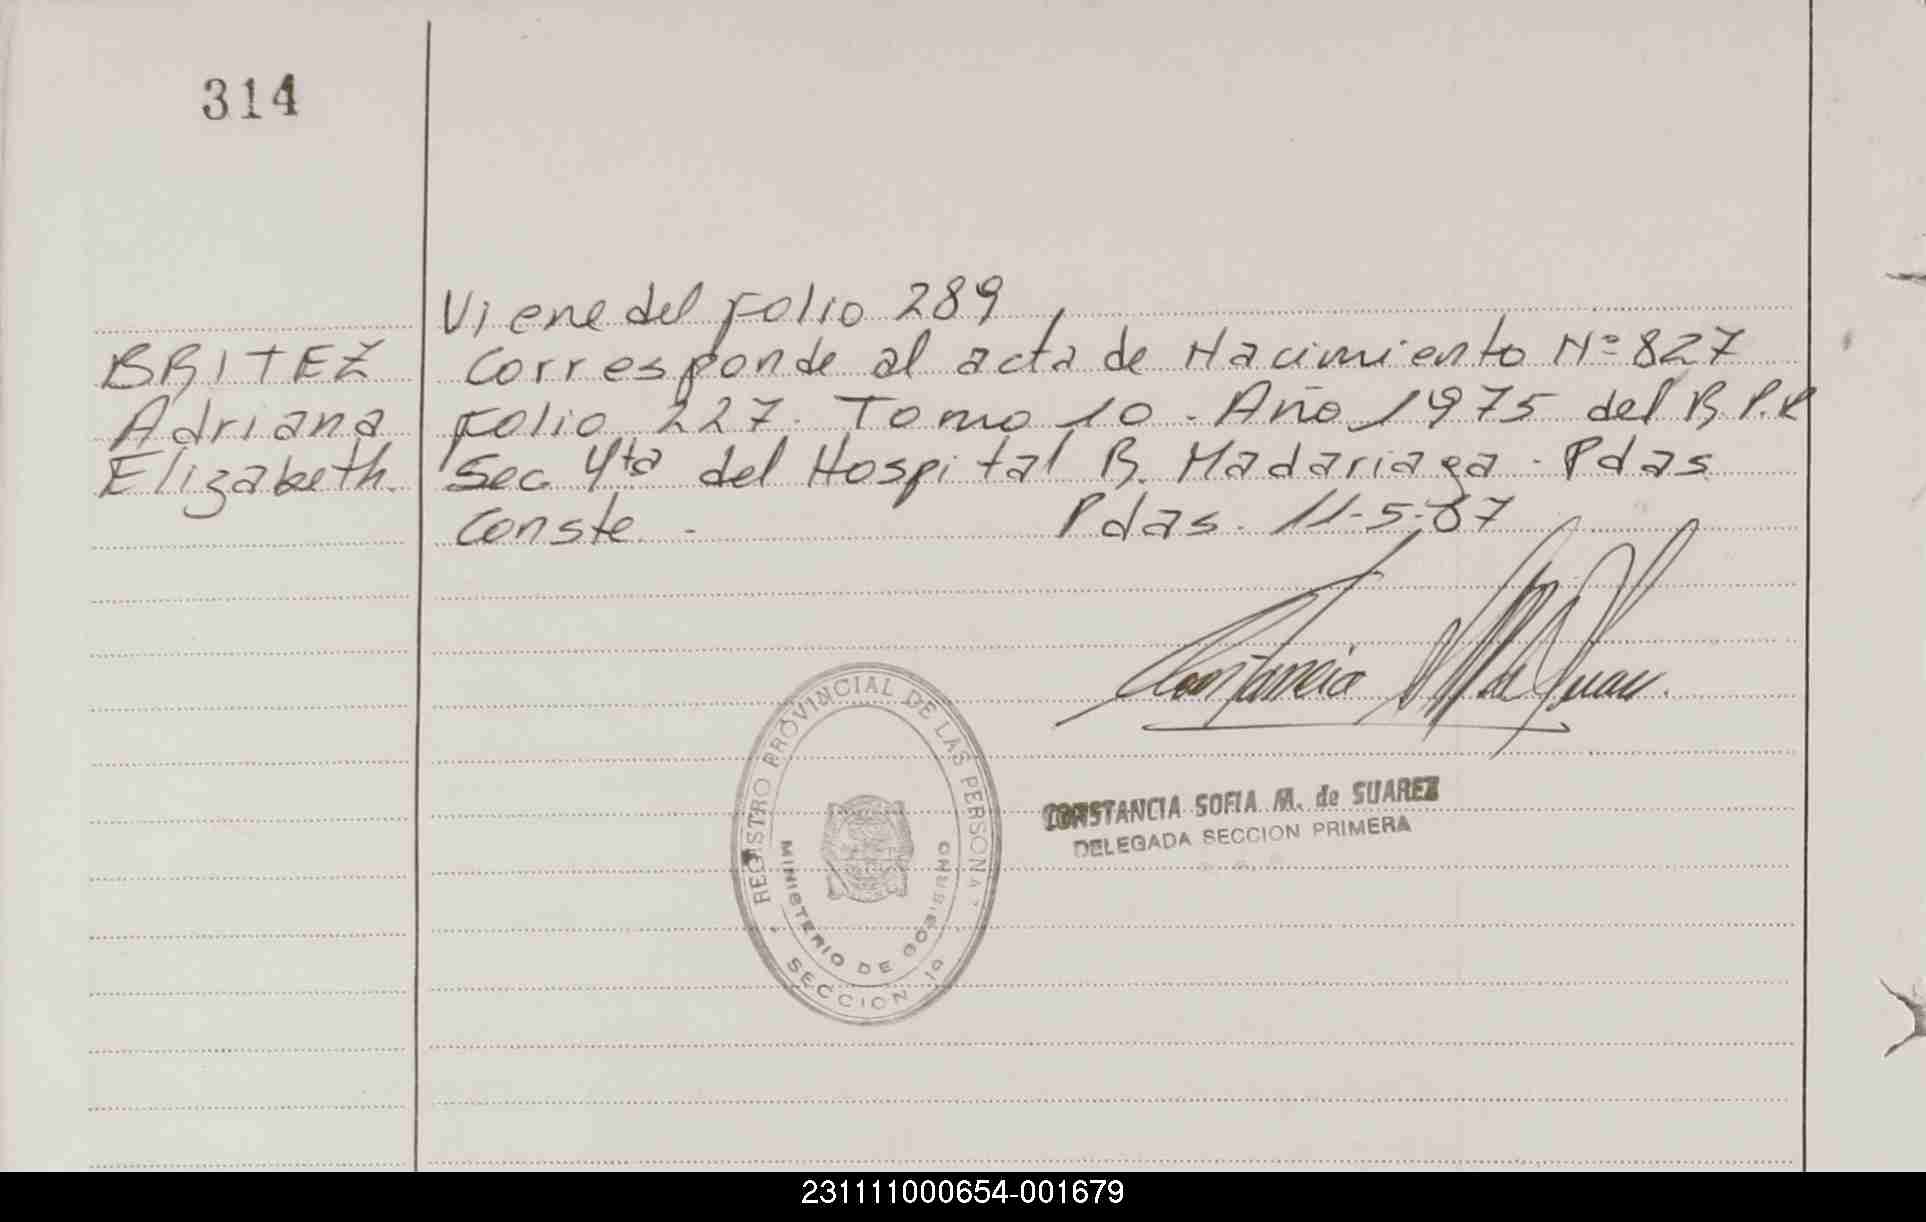 314
Viene del Folio 289
BRITEZ
Adriana
Elizabeth.
Corresponde al acta de Nacimiento Nº 827
Folio 227. Tomo 10. Año 1975 del R.P.P
Sec 4ta del Hospital R. Madariaga - Pdas
Conste. - Pdas. 11-5-87
Constancia M de Suarez.
REGISTRO PROVINCIAL DE LAS PERSONAS
MINISTERIO DE GOBIERNO
SECCION 1ª
CONSTANCIA SOFIA M. de SUAREZ
DELEGADA SECCION PRIMERA
231111000654-001679